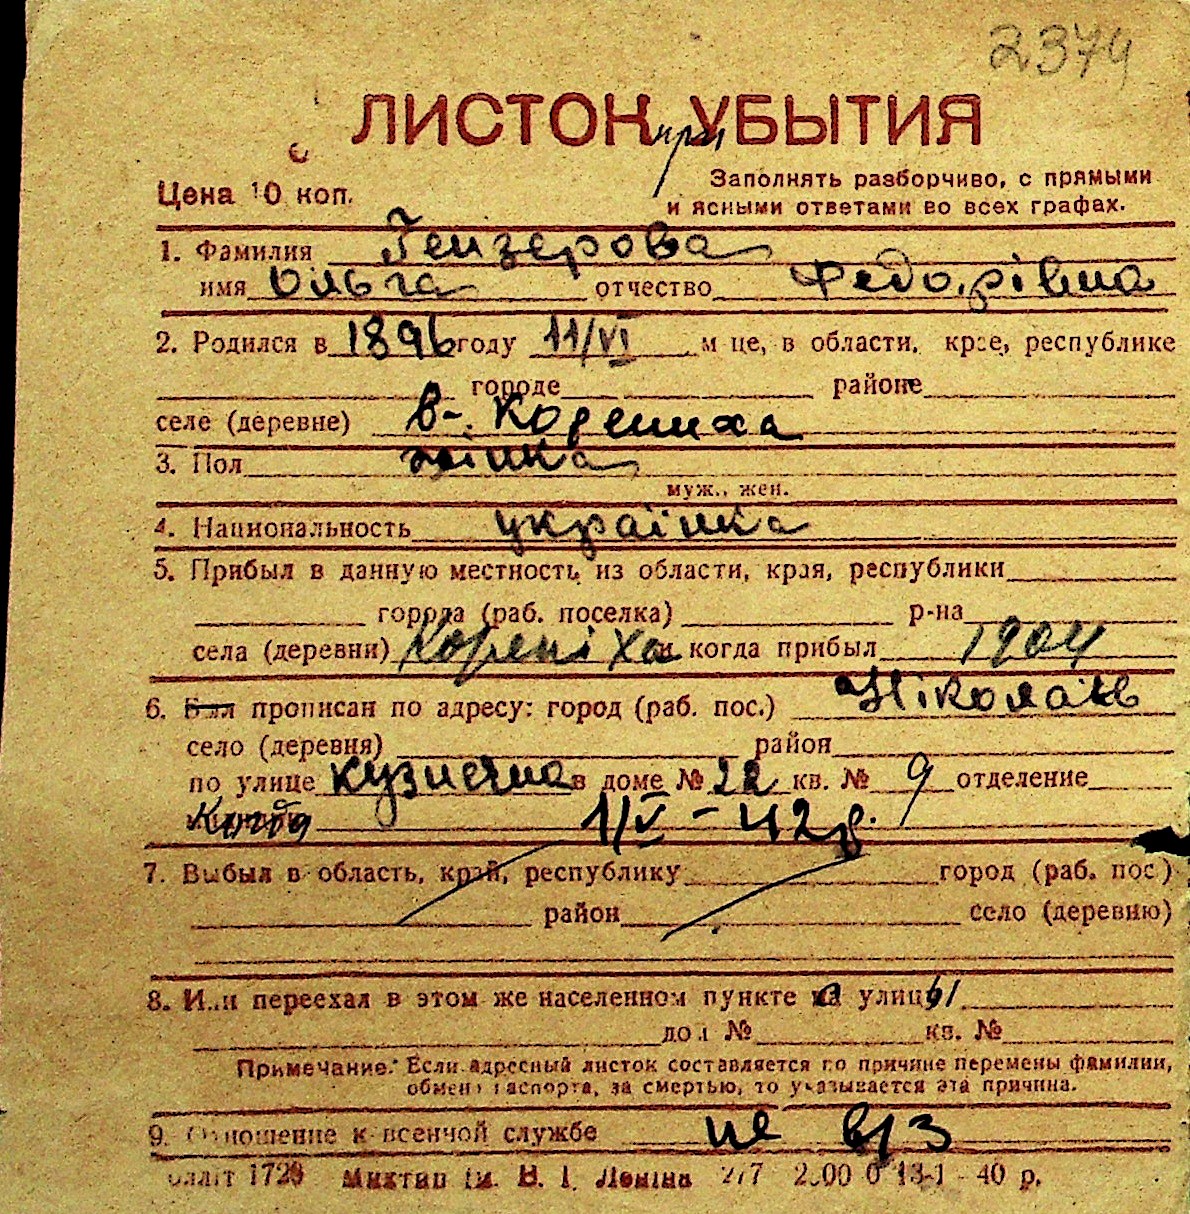 2374
ЛИСТОК УБЫТИЯ
при
Цена 10 коп.
Заполнять разборчиво, с прямыми
и ясными ответами во всех графах.
1. Фамилия Гейзерова
имя Ольга отчество Федорівна
2. Родился в 1896 году 11/VI м-це, в области, крае, республике
городе районе
селе (деревне) в-. Корениха
3. Пол жінка
муж., жен.
4. Национальность українка
5. Прибыл в данную местность из области, края, республики
города (раб. поселка) р-на
села (деревни) Кореніха и когда прибыл 1904
6. Был прописан по адресу: город (раб. пос.) Ніколаїв
село (деревня) район
по улице Кузнечна в доме № 22 кв. № 9 отделение
Когда 1/V - 42 р.
7. Выбыл в область, край, республику город (раб. пос.)
район село (деревню)
8. Или переехал в этом же населенном пункте с улицы
дом № кв. №
Примечание: Если адресный листок составляется по причине перемены фамилии,
обмена паспорта, за смертью, то указывается эта причина.
9. Отношение к военной службе не в/з
1729 Миктип ім. В. І. Леніна 2/7 13-1 - 40 р.